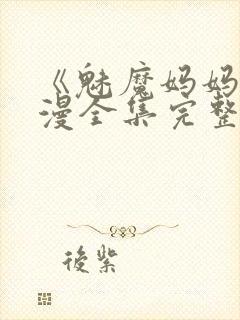 《魅魔妈妈
漫全集完整
後紫